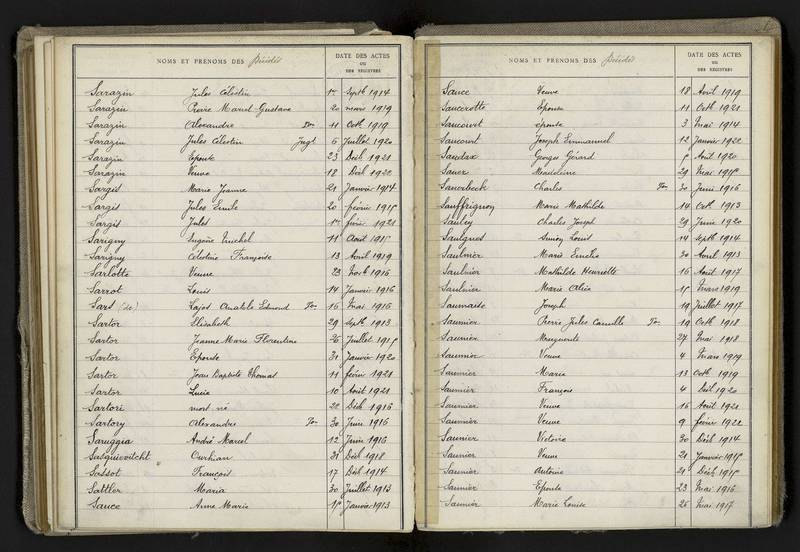 NOMS ET PRÉNOMS DES Décédés
DATE DES ACTES
OU
DES REGISTRES
Sarazin Jules Célestin Septb 1914
Sarazin Pierre Marcel Gustave 20 mars 1919
Sarazin Alexandre Ton 11 Octb 1919
Sarazin Jules Célestin Jugt 6 Juillet 1920
Sarazin Epouse 23 Décb 1921
Sarazin Veuve 18 Décb 1922
Sargis Marie Jeanne 21 Janvier 1914
Sargis Jules Emile 20 février
Sargis Jules février 1921
Sarigny Eugène Michel 11 Août
Sarigny Célestine Françoise 13 Avril 1919
Sarlotte Veuve 23 Novb 1916
Sarrot Louis 14 Janvier 1916
Sars (de) Anatole Edmond Ton 16 Mai 1916
Sartor Elisabeth 29 Septb 1913
Sartor Jeanne Marie Florentine Juillet
Sartor Epouse 31 Janvier 1920
Sartor Jean Baptiste Thomas 11 février 1921
Sartor Lucie 10 Août 1921
Sartori mort né 20 Décb 1916
Sartory Alexandre Ton 30 Juin 1916
Saruggia André Marcel 12 Juin 1916
Sasquievitcht 31 Décb 1918
Sassot François 17 Décb 1914
Sattler Maria 30 Juillet 1913
Sauce Anne Marie Janvier 1913
NOMS ET PRÉNOMS DES Décédés
DATE DES ACTES
OU
DES REGISTRES
Sauce Veuve 18 Avril 1919
Saucerotte Epouse 11 Octb 1921
Saucourt épouse 3 Mai 1914
Saucourt Joseph Emmanuel 12 Janvier 1922
Georges Gérard Août 1920
Sauer Madeleine 29 Mai
Sauerbeck Charles Ton 30 Juin 1916
Sauffrignon Marie Mathilde 14 Octb 1913
Sauley Charles Joseph 29 Juin 1920
Simon Louis 14 Septb 1914
Saulnier Marie Emelie 20 Avril 1913
Saulnier Mathilde Henriette 16 Août 1917
Saulnier Marie Mars 1919
Saumaise Joseph 19 Juillet 1917
Saunier Pierre Jules Camille Ton 19 Octb 1918
Saunier Marguerite 27 Mai 1918
Saunier Veuve 4 Mars 1919
Saunier Marie 13 Octb 1919
Saunier François 4 Décb 1920
Saunier Veuve 16 Août 1921
Saunier Veuve 9 févier 1922
Saunier Victorie 30 Décb 1914
Saunier Veuve 21 Janvier
Saunier Antoine 21 Décb
Saunier Epouse 23 Mai 1916
Saunier Marie Louise 26 Mai 1917